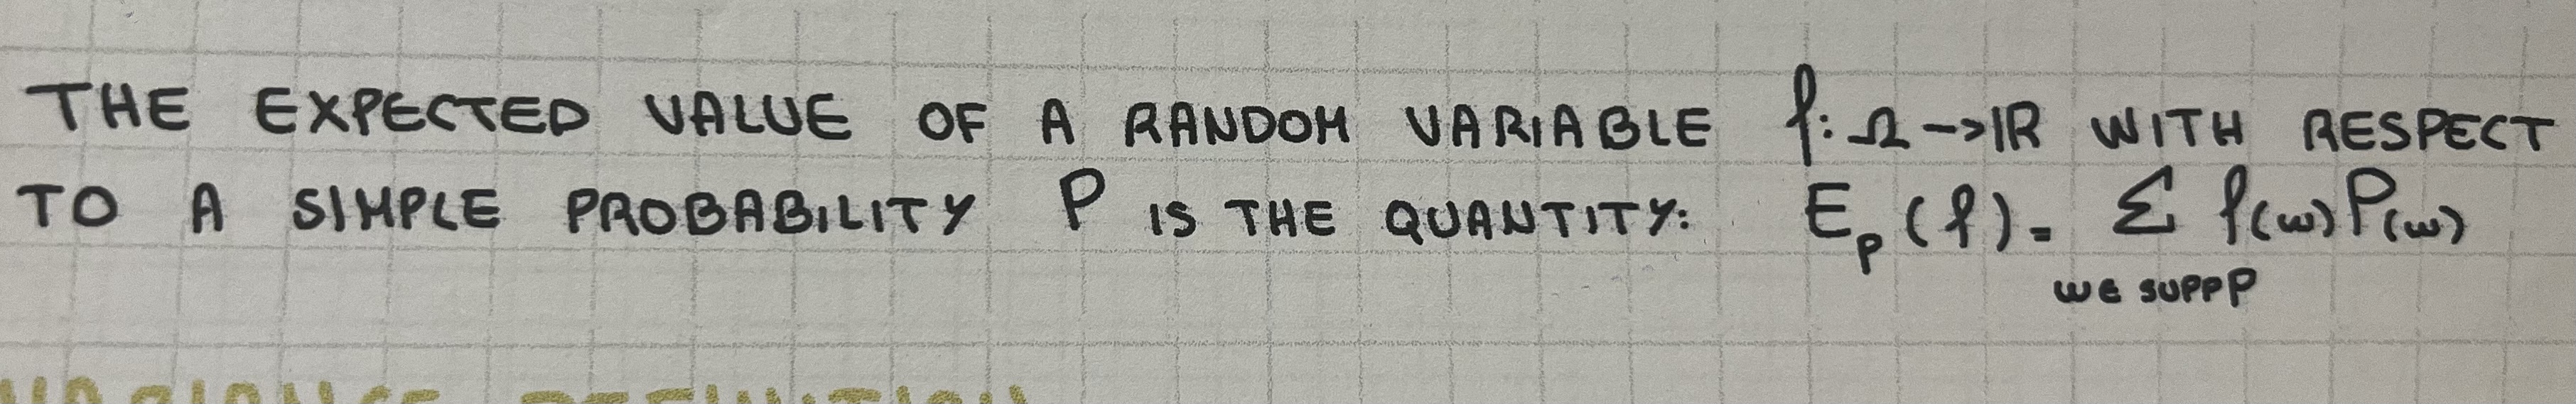 THE EXPECTED VALUE OF A RANDOM VARIABLE f: Ω → ℝ WITH RESPECT
TO A SIMPLE PROBABILITY P IS THE QUANTITY: E_P (f) = Σ f(ω) P(ω)
ω ∈ SUPP P
VARIANCE DEFINITION